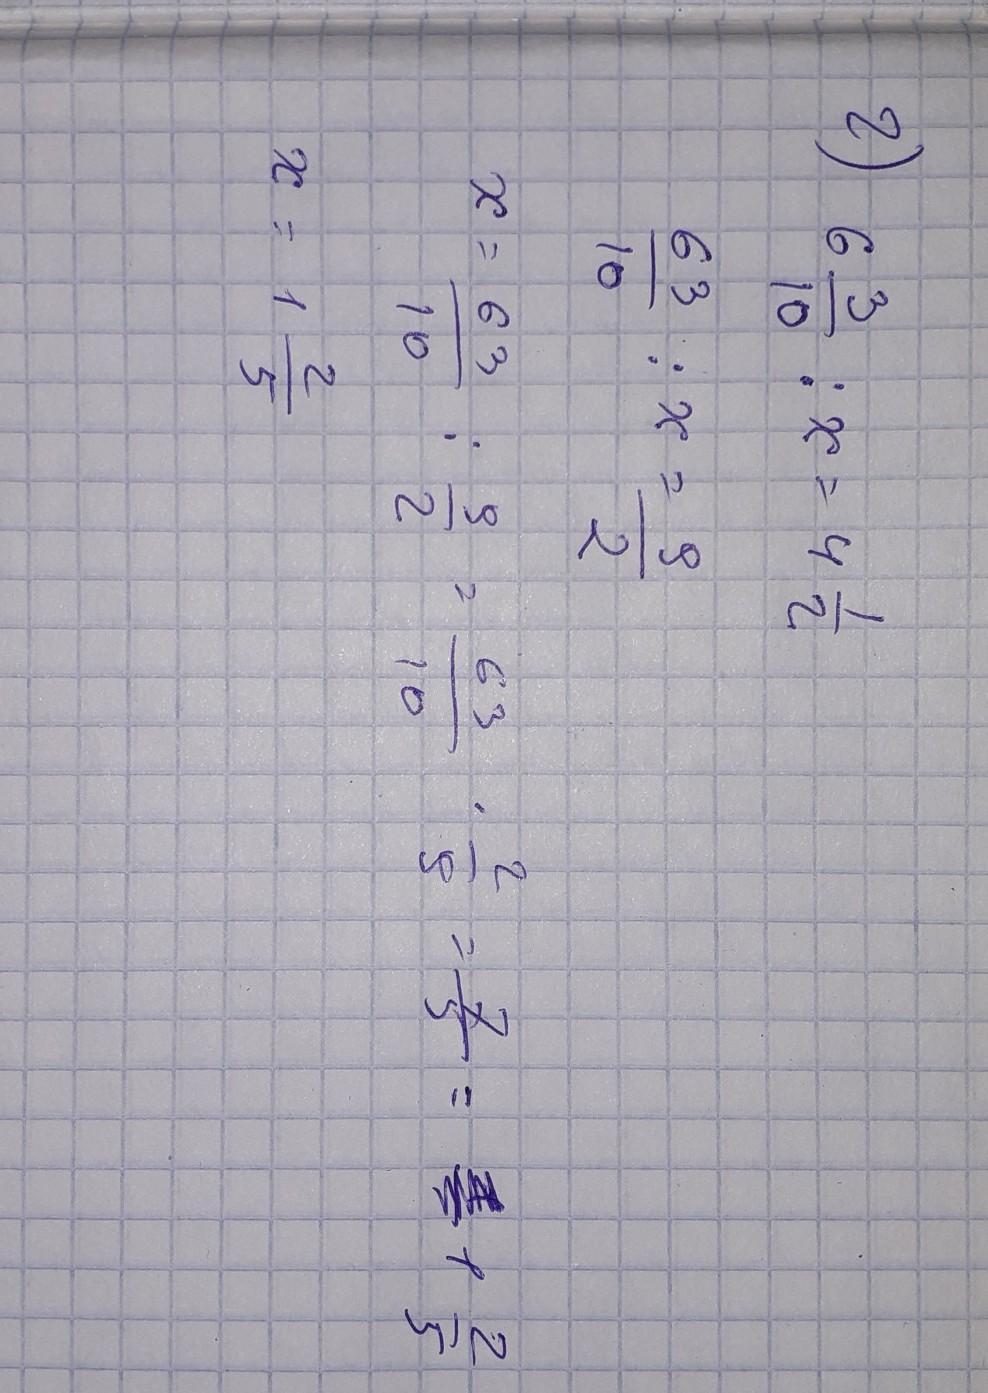 2) 6 3/10 : x = 4 1/2
63/10 : x = 9/2
x = 63/10 : 9/2 = 63/10 · 2/9 = 7/5 = 1 2/5
x = 1 2/5